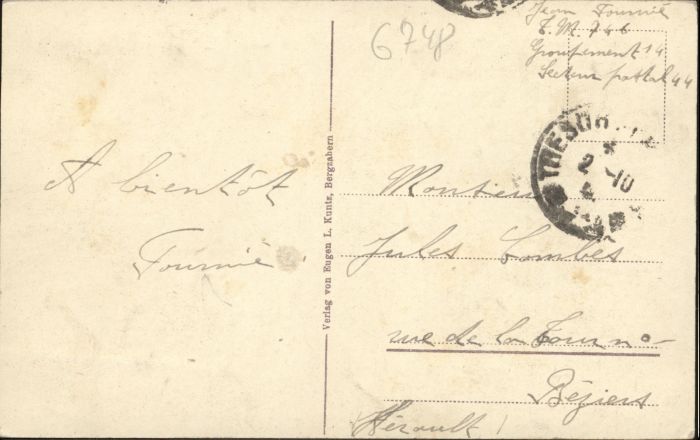 6748
Jean Fournié
T.M. 746
Groupement 14
Secteur postal 44
TRESOR
2-10
A bientôt
Fournié
Verlag von Eugen L. Kuntz, Bergzabern.
Monsieur
Jules Combes
rue de la
Béziers
(Hérault)